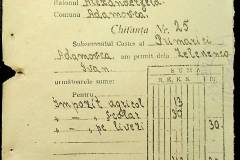 Raionul Alexanderfeld
Comuna Adamovca
Chitanța Nr. 25
Subsemnatul Casier al Primariei
Adamovca am primit dela Zelenenco
Ivan
următoarele sume:
SUMA
Pentru R. K. K. K. N. I.
Impozit agricol 13
" — " școlar 30
" — " pe livezi 30.